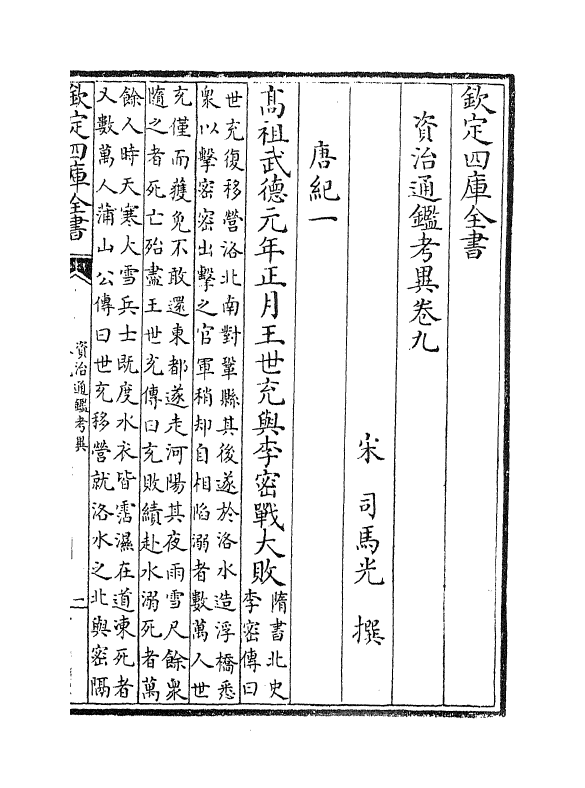 欽定四庫全書
資治通鑑考異卷九
宋 司馬光 撰
唐紀一
髙祖武德元年正月王世充與李密戰大敗
隋書北史
李密傳曰
世充復移營洛北南對鞏縣其後遂於洛水造浮橋悉
衆以擊密密出擊之官軍稍却自相陷溺者數萬人世
充僅而獲免不敢還東都遂走河陽其夜雨雪尺餘衆
隨之者死亡殆盡王世充傳曰充敗績赴水溺死者萬
餘人時天寒大雪兵士既度水衣皆霑濕在道凍死者
又數萬人蒲山公傳曰世充移營就洛水之北與密隔
欽定四庫全書
資治通鑑考異